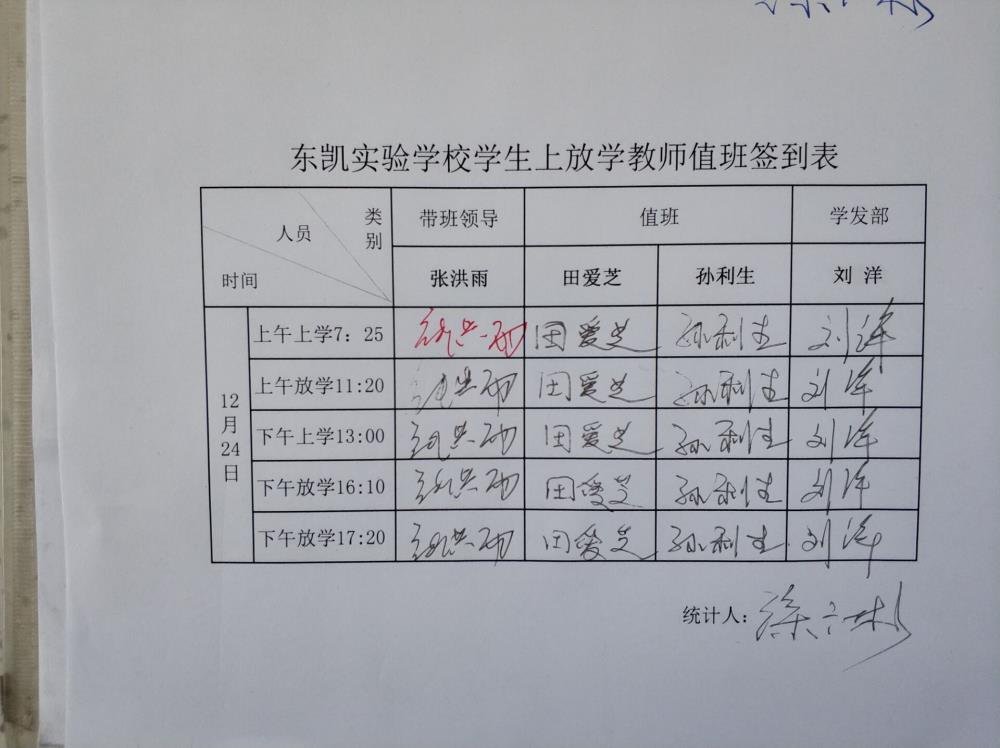 东凯实验学校学生上放学教师值班签到表
人员 类别 时间 带班领导 值班 学发部
张洪雨 田爱芝 孙利生 刘 洋
12月24日
上午上学7：25 张洪雨 田爱芝 孙利生 刘洋
上午放学11:20 张洪雨 田爱芝 孙利生 刘洋
下午上学13:00 张洪雨 田爱芝 孙利生 刘洋
下午放学16:10 张洪雨 田爱芝 孙利生 刘洋
下午放学17:20 张洪雨 田爱芝 孙利生 刘洋
统计人：